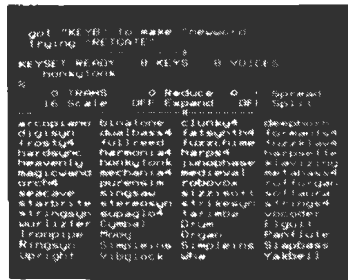 got "KEYB" to make "newword
trying "RETGATE"
KEYSET READY 0 KEYS 0 VOICES
honkytonk
%
0 TRANS 0 Reduce 0 Spread
16 Scale OFF Expand OFF Split
arcopiano binatone clunky4 deephorn
digisyn dualbass4 fatsynth4 formants4
frosty4 fullreed fuzzitime fuzzklav4
hardsync harmonia4 harps4
heavenly honkytonk junophase klavizing
magicwand mechania4 medieval metabass4
orch4 puresin robovox
seacave singsaw sizzisoft softaura4
starbrite stereosyn strikesyn strings4
stringsyn supaglo4 tarimba vocoder
wurlizter Cymbal Drum
Ironpipe Moog Organ Panflute
Ringsyn Simpleins Simpleins Slapbass
Upright Vibglock Yakbell